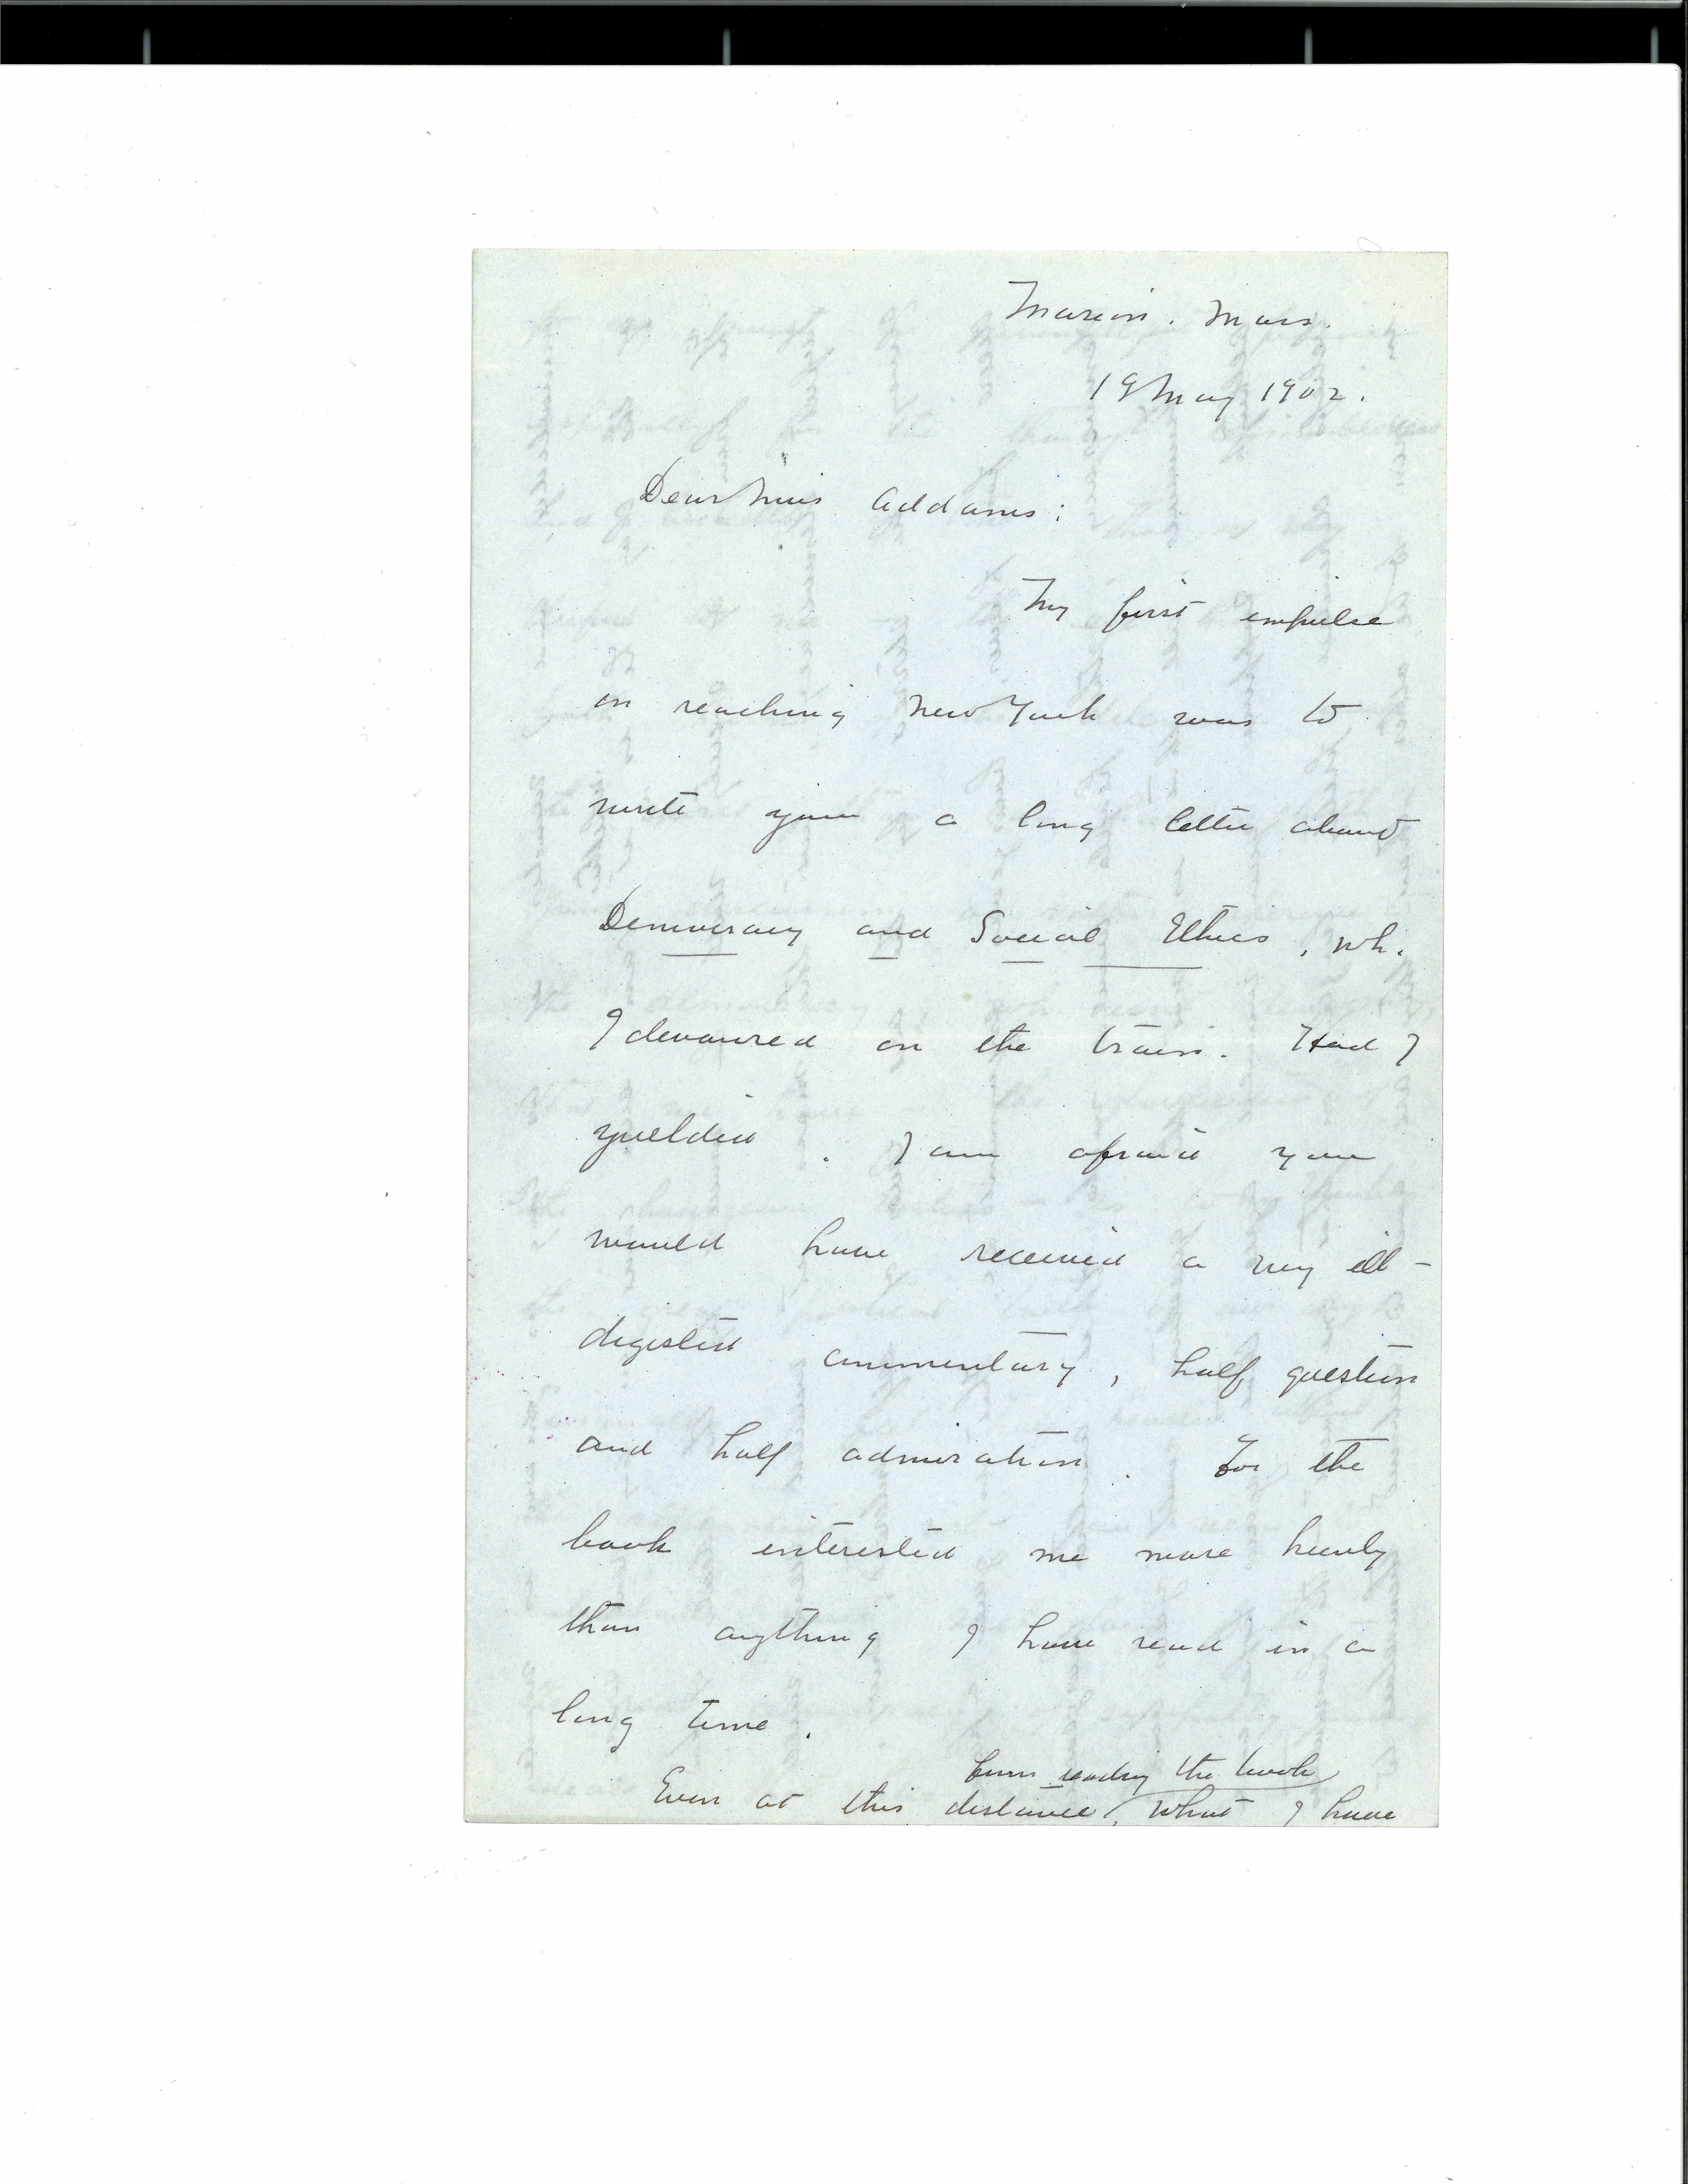 Marion. Mass.
19 May 1902.
Dear Miss Addams:
My first impulse
on reaching New York was to
write you a long letter about
Democracy and Social Ethics, wh.
I devoured on the train. Had I
yielded. I am afraid you
would have received a very ill-
digested commentary, half question
and half admiration. For the
book interested me more keenly
than anything I have read in a
long time.
from reading the book
Even at this distance, what I have